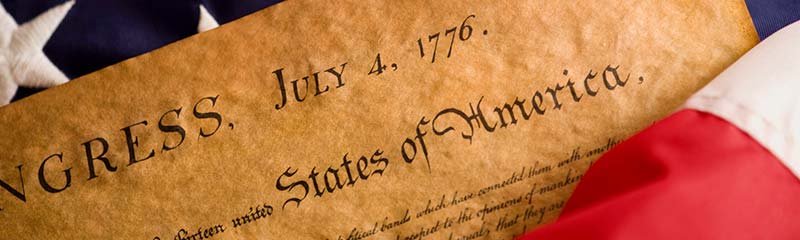 NGRESS, JULY 4, 1776.
thirteen united States of America,
political bands which have connected them with another
respect to the opinions of mankin
that they are